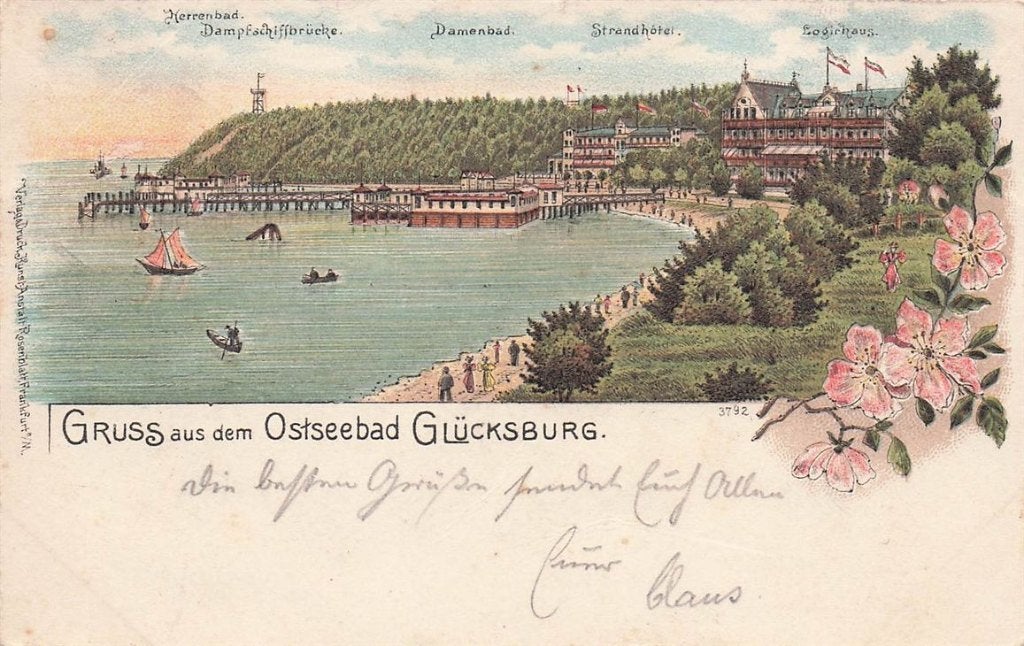 Herrenbad.
Dampfschiffbrücke.
Damenbad.
Strandhôtel.
Logirhaus.
Verlag u. Druck Kunst-Anstalt Rosenblatt, Frankfurt a/M.
3792
GRUSS aus dem Ostseebad GLÜCKSBURG.
Die besten Grüße sendet Euch Allen
Euer
Claus